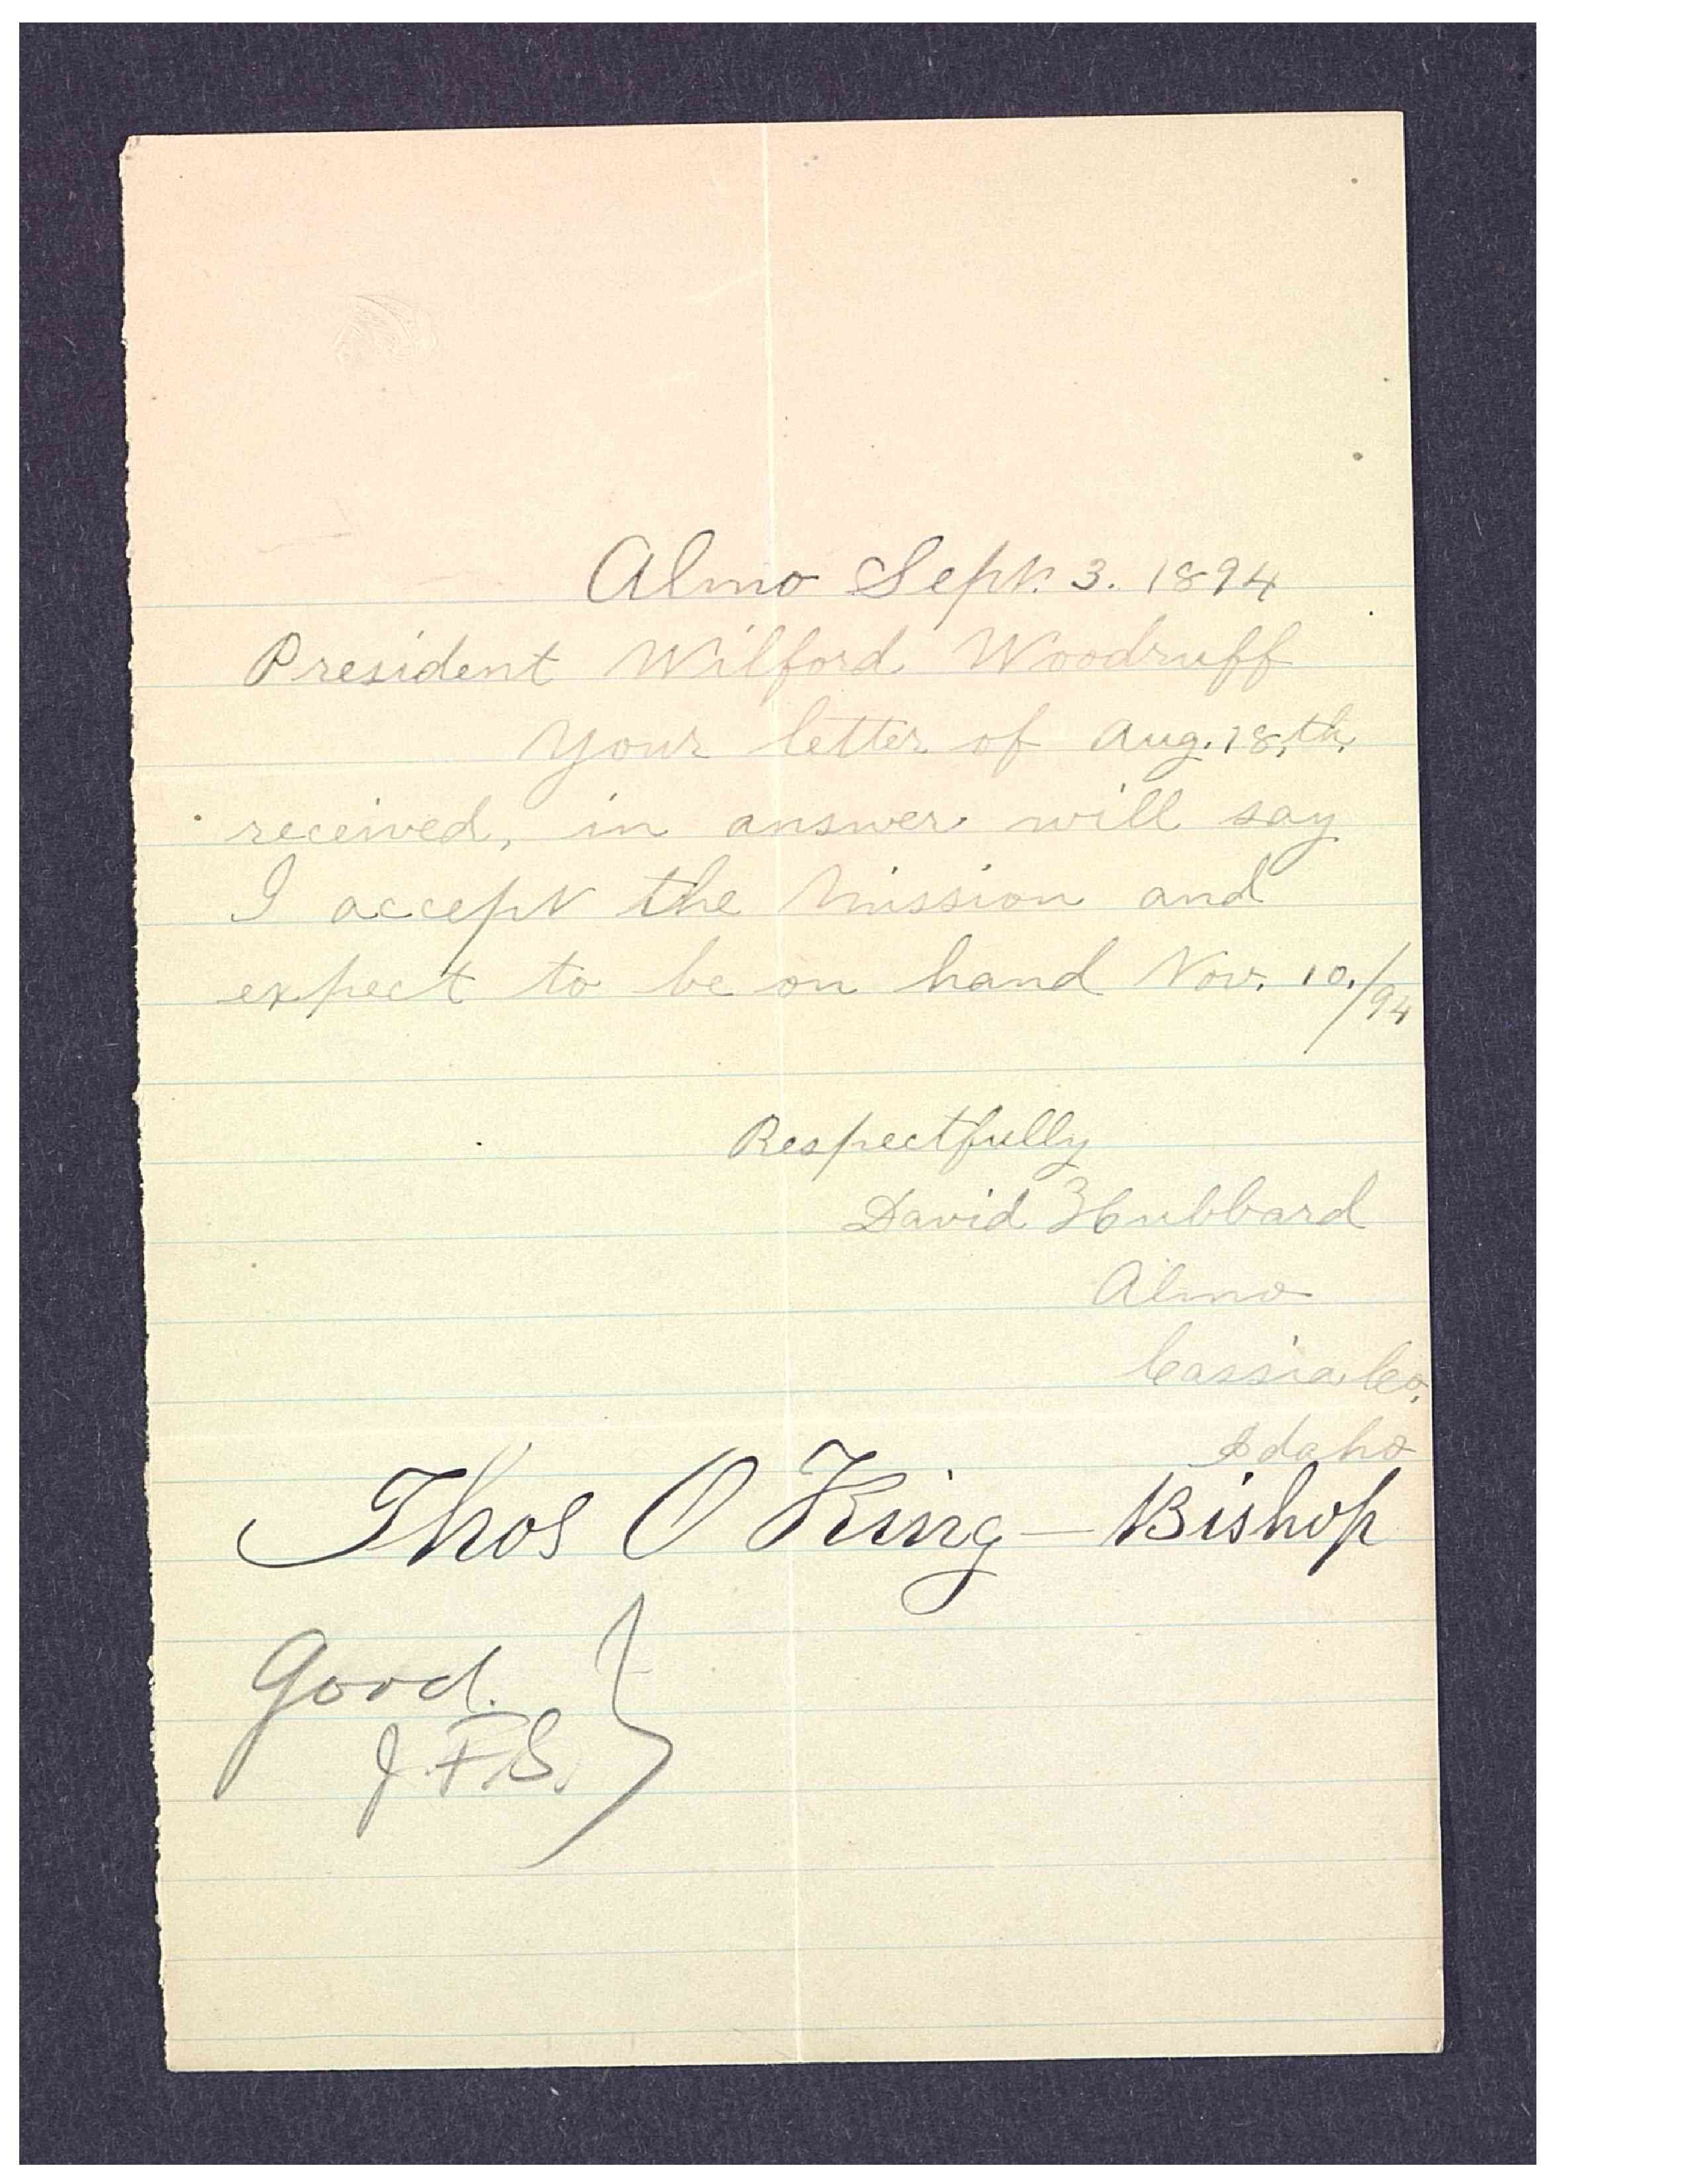 Almo Sept. 3. 1894
President Wilford Woodruff
Your letter of Aug. 18,th,
received, in answer will say
I accept the Mission and
expect to be on hand Nov. 10./94
Respectfully
David Hubbard
Almo
Cassia Co,
Idaho
Thos O King — Bishop
Good.
J. F. S.